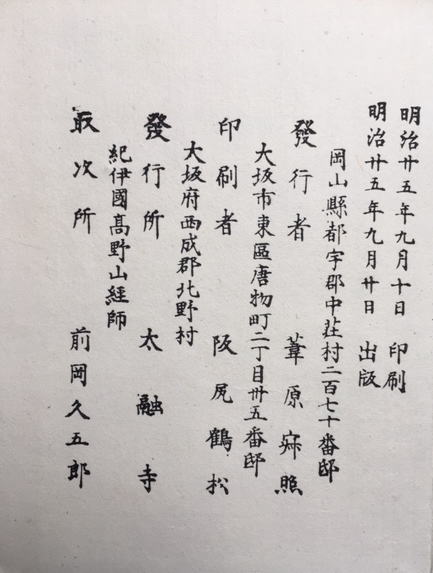 明治廿五年九月十日 印刷
明治廿五年九月廿日 出版
岡山縣都宇郡中莊村二百七十番邸
發行者 葦原寂照
大坂市東區唐物町二丁目卅五番邸
印刷者 阪尻鶴松
大坂府西成郡北野村
發行所 太融寺
紀伊國高野山經師
取次所 前岡久五郎